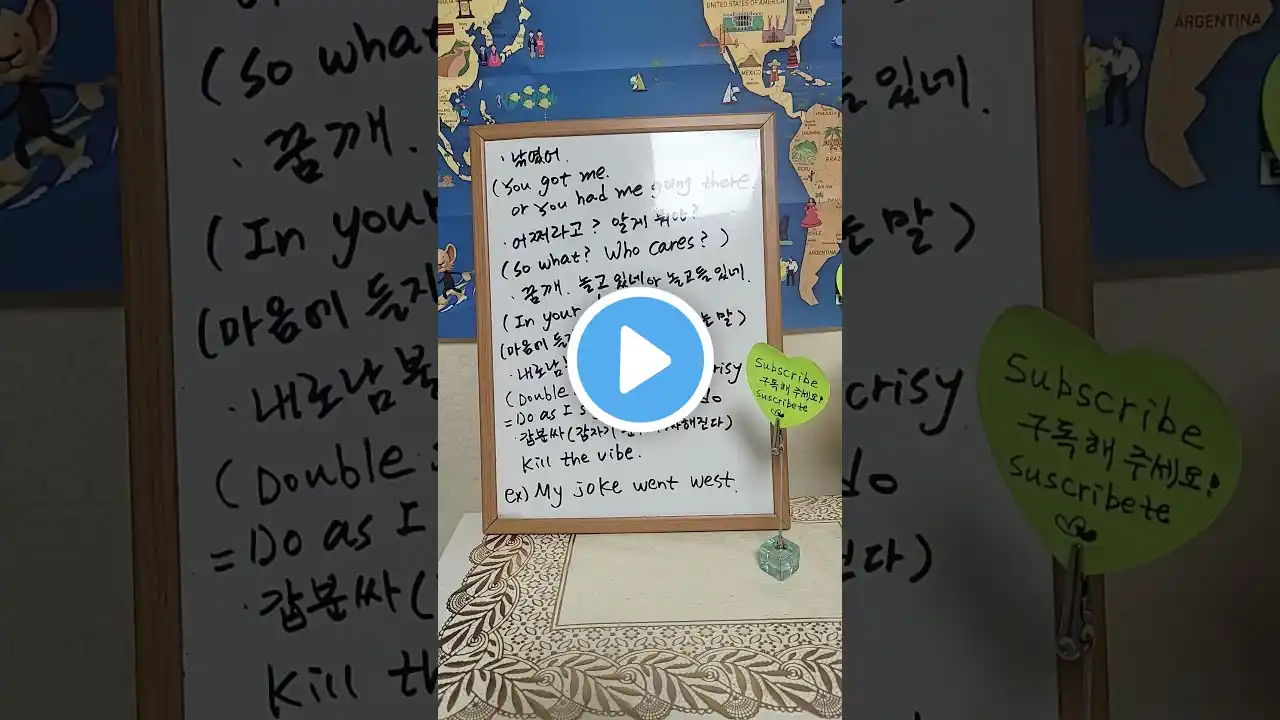 UNITED STATES OF AMERICA
MEXICO
PERU
ARGENTINA
· 낚였어.
(You got me.
or You had me going there.
· 어쩌라고? 알게 뭐야?
(So what? Who cares?)
· 꿈깨. 놀고 있네 놀고들 있네.
(In your 는 말)
(마음에 들지
· 내로남불 crisy
(Double
= Do as I do
· 갑분싸 (갑자기 해진다)
Kill the vibe.
ex) My joke went west.
Subscribe
구독해 주세요!
Suscribete
(So what
· 꿈깨.
(In your
(마음에 들지
· 내로남불
(Double
= Do as I
· 갑분싸 (
Kill th
ARGENTINA
들 있네.
는 말)
crisy
do
진다)
Subscribe
구독해 주세요!
Suscribete